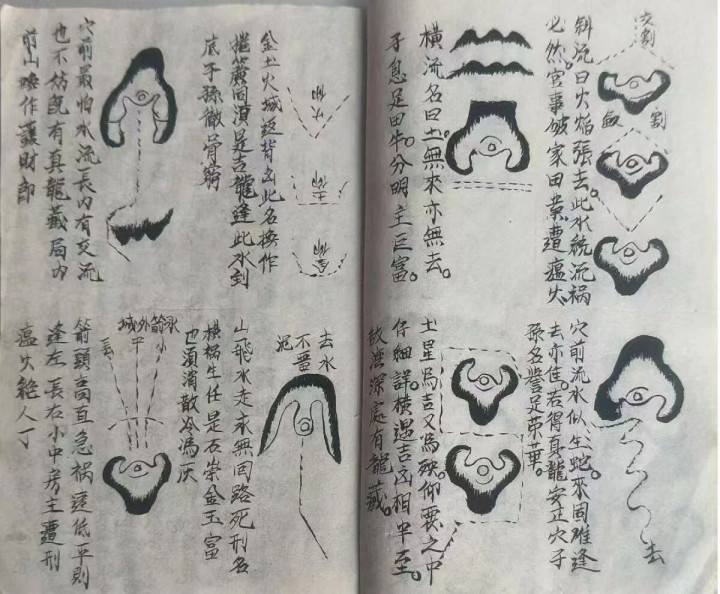 交割
割
斜流曰火焰張去此水繞流禍
必然官事破家田業遭瘟火
橫流名曰土無來亦無去
子息足田牛分明主巨富
穴前流水似生蛇來固難逢
去亦佳若得真龍安正穴子
孫名譽足荣華
去
土星爲吉又爲殃仰要之中
仔細詳橫遇吉凶相半至
故然深處有龍藏
金土火城逆背凶此名換作
捲簾同須是吉龍逢此水到
底子孫徹骨窮
穴前最怕水流長内有交流
也不妨既有真龍藏局内
前山喚作護財郎
去水
不畫
山飛水走永無囘路死刑名
橫禍生任是石崇金玉富
也須消散冷爲灰
水箭外城
小
中
箭頭高直急禍逆低平則
逢左長右小中房主遭刑
瘟火絶人丁